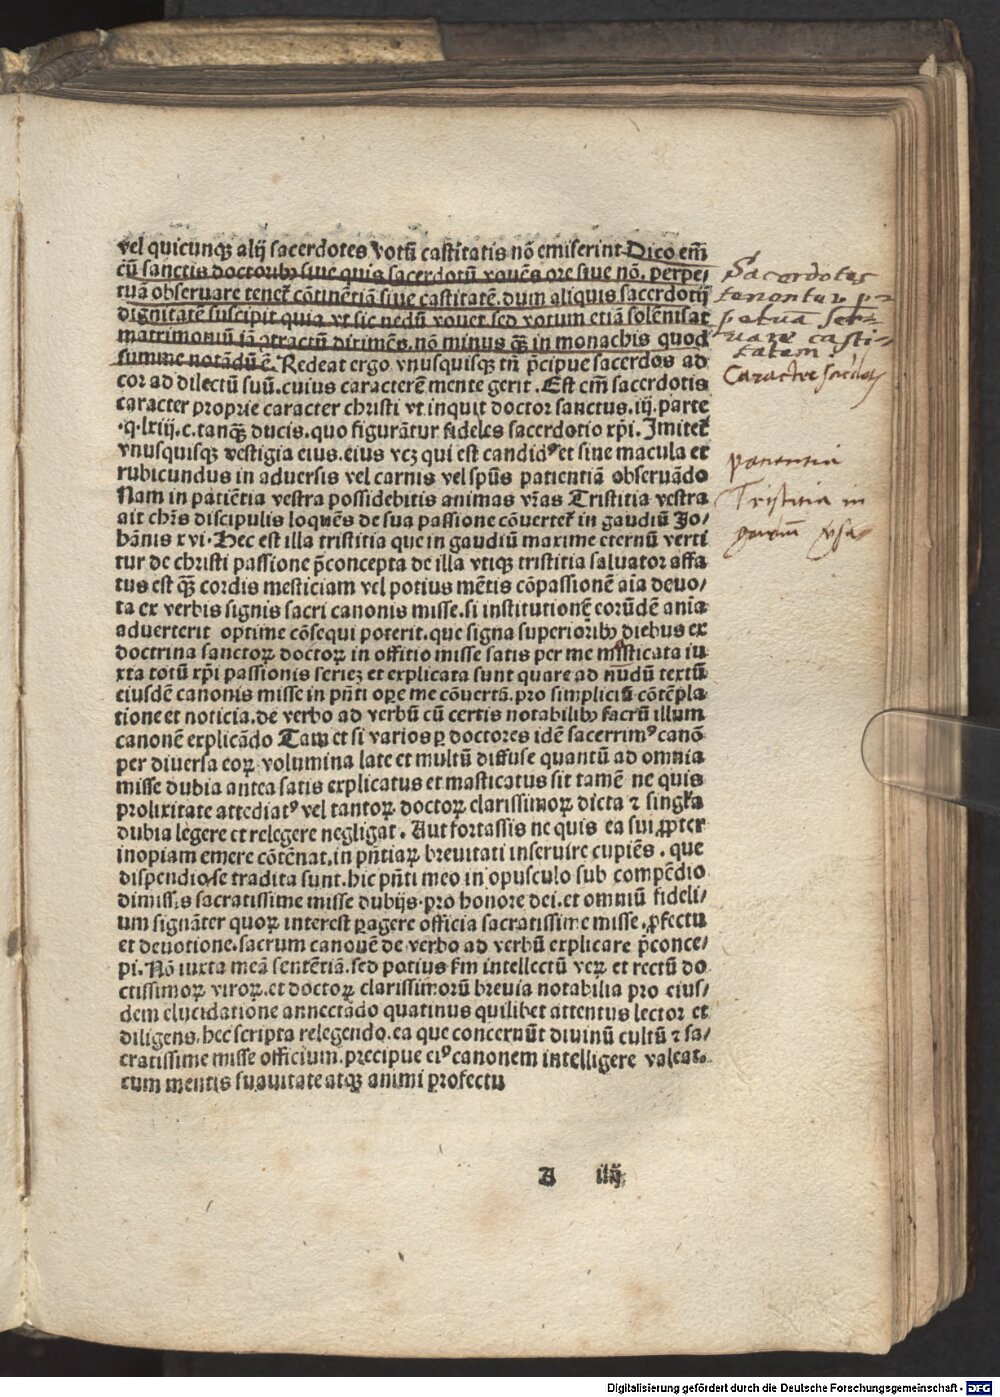 vel quicunqꝫ alij sacerdotes votū castitatis nō emiserint Dico em̄
cū sanctis doctoribꝰ siue quis sacerdotū vouēs ore siue nō. perpe⸗
tuā obseruare tenet̄ cōtinētiā siue castitatē. dum aliquis sacerdotij
dignitatē suscipit quia vt sic nedū vouet sed votum etiā solēnisat
matrimoniū iā ꝯtractū dirimēs. nō minus qꝫ̄ in monachis quod
summe notādū ē. Redeat ergo vnusquisqꝫ tn̄ p̄cipue sacerdos ad
cor ad dilectū suū. cuius caracterem mente gerit. Est em̄ sacerdotis
caracter proprie caracter christi vt inquit doctor sanctus. iij. parte
.q. lxiij. c. tanqꝫ̄ ducis. quo figurātur fideles sacerdotio xp̄i. Imitet̄
vnusquisqꝫ vestigia eius. eius vcꝫ qui est candidꝰ et sine macula et
rubicundus in aduersis vel carnis vel spūs patientiā obseruādo
Nam in patiētia vestra possidebitis animas vr̄as Tristitia vestra
ait chr̄s discipulis loquēs de sua passione cōuertet̄ in gaudiū Jo⸗
hānis xvi. Hec est illa tristitia que in gaudiū maxime eternū verti
tur de christi passione p̄concepta de illa vtiqꝫ tristitia saluator affa
tus est qꝫ̄ cordis mesticiam vel potius mētis cōpassionē aīa deuo⸗
ta ex verbis signis sacri canonis misse. si institutionē eorūdē aīa
aduerterit optime cōsequi poterit. que signa superioribꝰ diebus ex
doctrina sanctoꝝ doctoꝝ in offitio misse satis per me masticata iu
xta totū xp̄i passionis serieꝫ et explicata sunt quare ad nūdū textū
eiusdē canonis misse in pn̄ti oꝑe me cōuertā. pro simpliciū cōtēpla
tione et noticia. de verbo ad verbū cū certis notabilibꝰ sacrū illum
canonē explicādo Tam et si varios ꝑ doctores idē sacerrimꝰ canō
per diuersa eoꝝ volumina late et multū diffuse quantū ad omnia
misse dubia antea satis explicatus et masticatus sit tamē ne quis
prolixitate attediatꝰ vel tantoꝝ doctoꝝ clarissimoꝝ dicta ⁊ singl̄a
dubia legere et relegere negligat. Aut fortassis ne quis ea sui ꝓpter
inopiam emere cōtēnat. in pn̄tiaꝝ breuitati inseruire cupiēs. que
dispendiose tradita sunt. hic pn̄ti meo in opusculo sub compēdio
dimissis sacratissime misse dubijs. pro honore dei. et omniū fideli⸗
um signāter quoꝝ interest ꝑagere officia sacratissime misse. ꝓfectu
et deuotione. sacrum canonē de verbo ad verbū explicare p̄conce⸗
pi. Nō iuxta meā sentētiā. sed potius s̄m intellectū veꝝ et rectū do
ctissimoꝝ viroꝝ. et doctoꝝ clarissimorū breuia notabilia pro eius⸗
dem elucidatione annectādo quatinus quilibet attentus lector et
diligens. hec scripta relegendo. ea que concernūt diuinū cultū ⁊ sa⸗
cratissime misse officium. precipue eiꝰ canonem intelligere valeat.
cum mentis suauitate atqꝫ animi ꝓfectu
A iiij
Sacerdotes
tenentur p⸗
petuā ser⸗
uare casti⸗
tatem
Caracter sacerdot
patientia
Tristitia in
gaudiū
Digitalisierung gefördert durch die Deutsche Forschungsgemeinschaft - DFG